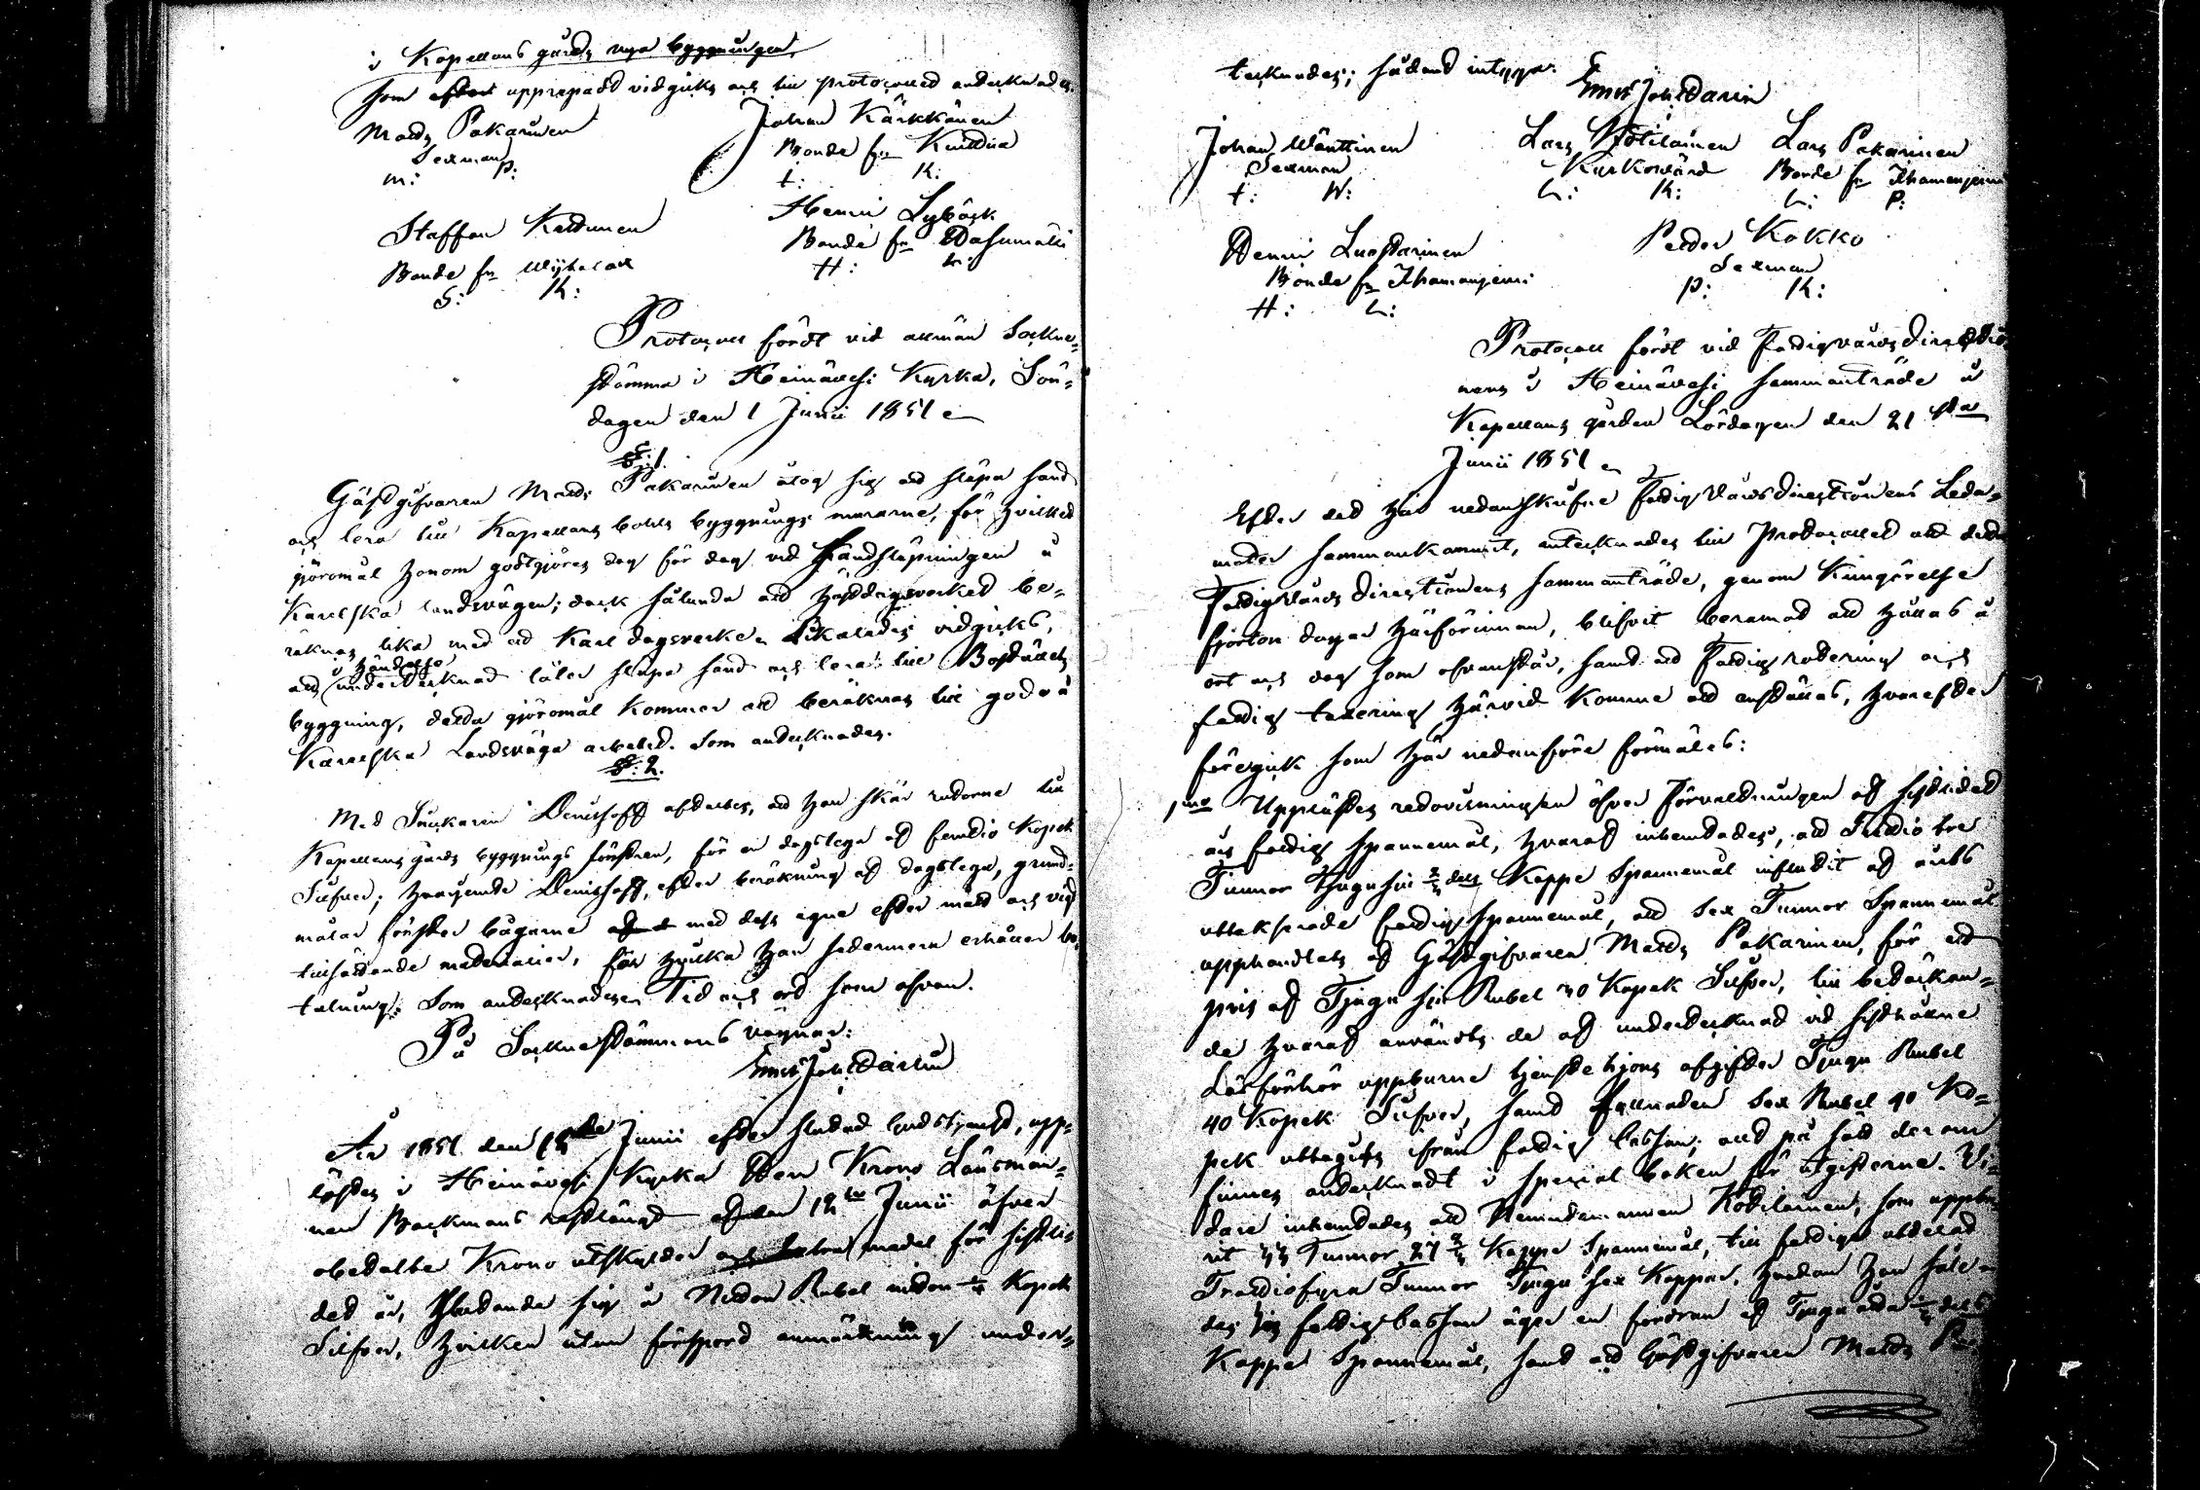 i Kapellans gårds nya byggningen
som efter upprepadt vidgicks och till protocollet antecknades.
Matts Pakarinen
Sexman
m: P:
Johan Kärkkänen
Bonde fr
J: K:
Staffan Kettunen
Bonde fr
S: K:
Henric Lybäck
Bonde fr Pasumäki
H: L:
Protocoll fördt vid allmän Sockne-
stämma i Heinävesi Kyrka, Sön-
dagen den 1 Junii 1851
§: 1.
Gästgifvaren Matts Pakarinen åtog sig att släpa sand
och lera till Kapellans bohls byggnings murarne, för hvilket
göromål honom godtgöres dag för dag vid Sandsläpningen å
Karelska landsvägen; dock sålunda att hästdagsverket be-
räknas lika med ett Karl dagsverke. Likaledes vidgicks,
att i händelse undertecknad låter släpa sand och lera till Boställets
byggning, detta göromål kommer att beräknas till godo å
Karelska Landsväga arbetet. Som antecknades.
§: 2.
Med Snickaren Denishoff aftaltes, att han skär rutorne till
Kapellans gårds byggnings fönstren, för en dagslega af femtio Kopek
Silfver; hvarjemte Denishoff, efter beräkning af dagslega, grund-
målar fönster bågarne med dess egne efter mått och vigt
tillhållande materialier, för hvilka han sedermera erhåller be-
talning. Som antecknades. Tid och ort som ofvan.
På Sockne Stämmans vägnar:
År 1851 den 15de Junii efter slutad Gudstjenst, upp-
lästes i Heinävesi Kyrka Herr Krono Länsman-
nen Backmans restlängd af den 12te Junii öfver
obetalte Krono utskylder för sistli-
det år, slutande sig å Nitton Rubel nitton Kopek
Silfver, hvilken utan försport anmärkning under-
tecknades; sådant intyga:
Johan Wänttinen
Sexman
J: W:
Lars Kotilainen
Kyrkovärd
L: K:
Lars Pakarinen
Bonde fr Ihamaniemi
L: P:
Henric Luostarinen
Bonde fr Ihamaniemi
H: L:
Petter Kokko
Sexman
P: K:
Protocoll fördt vid Fattigvårds Directio-
nens i Heinävesi sammanträde å
Kapellans gården Lördagen den 21sta
Junii 1851
Efter det här nedanskrifne Fattig Vårds Directionens Leda-
möter sammankommit, antecknades till Protocollet att detta
Fattig Vårds Directionens sammanträde, genom Kungörelse
fjorton dagar härförinnan, blifvit beramad att hållas å
ort och dag som ofvanstår, samt att Fattig rotering och
fattig taxering härvid komme att anställas, hvarefter
föregick som här nedanföre förmäles:
1mo Upplästes redovisningen öfver förvaltningen af sistlidet
års fattig spannemål, hvaraf inhemtades, att Trettio tre
Tunnor Tjugusju Kappe Spannemål influtit af årets
uttaxerade fattig spannemål, att sex Tunnor Spannemål
upphandlats af Gästgifvaren Matts Pakarinen, för ett
pris af Tjugu sju Rubel 40 Kopek Silfver, till betäckan-
de hvaraf användts de af undertecknad vid sisthållne
Läsförhör uppburne tjenstehjons afgifter Tjugu Rubel
40 Kopek Silfver, samt fyllnaden sex Rubel 90 Ko-
pek uttagits ifrån fattig cassan; allt på sätt derom
finnes antecknadt i special boken för utgifterne. Vi-
dare inhemtades att Nemndemannen Kotilainen, som uppbu-
rit 33 Tunnor 27 Kappe Spannemål, till fattige utdelat
Trettiofyra Tunnor Tjugu sex Kappar, hvadan han såle-
des hos fattigcassan äger en fordran af Tjuguåtta
Kappe Spannemål, samt att Gästgifvaren Matts Pa-